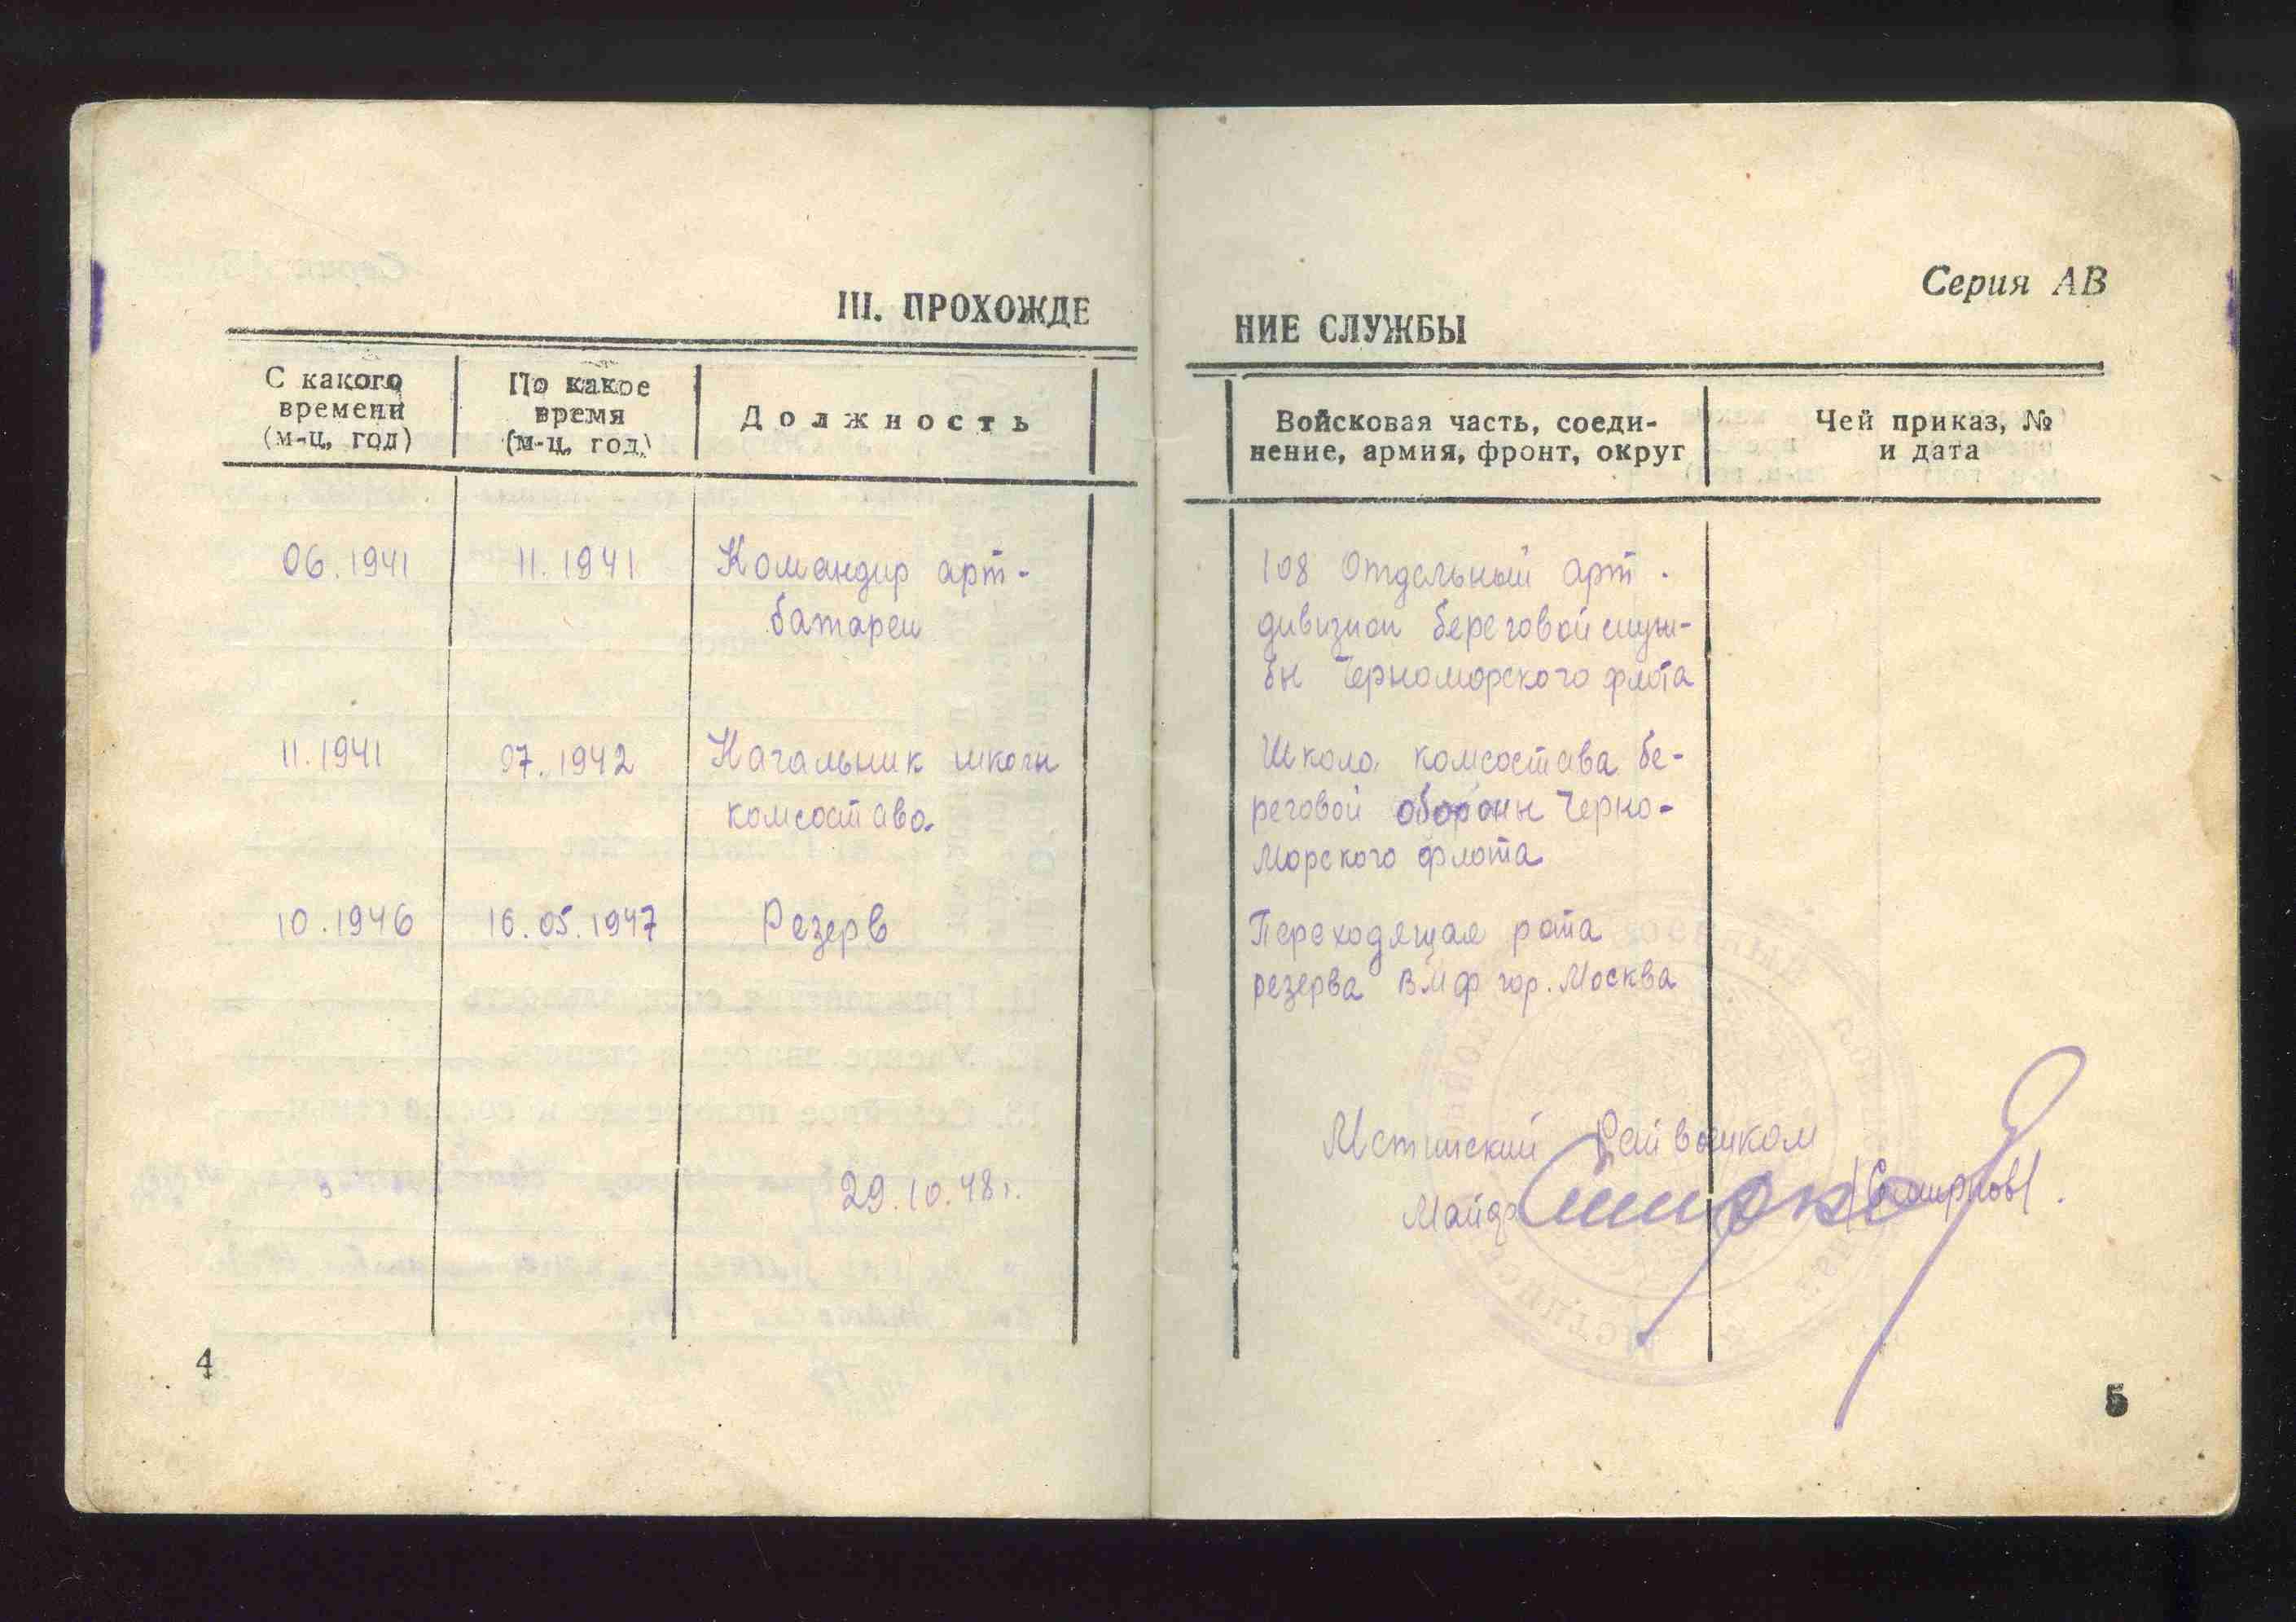 III. ПРОХОЖДЕ
С какого времени (м-ц, год)
По какое время (м-ц, год)
Должность
06.1941
11.1941
Командир арт-
батареи
11.1941
07.1942
Начальник школы
комсостава
10.1946
16.05.1947
Резерв
29.10.48 г.
4
Серия АВ
НИЕ СЛУЖБЫ
Войсковая часть, соеди-
нение, армия, фронт, округ
Чей приказ, №
и дата
108 Отдельный арт.
дивизион береговой служ-
бы Черноморского флота
Школа комсостава бе-
реговой обороны Черно-
морского флота
Переходящая рота
резерва ВМФ гор. Москва
Мстинский Райвоенком
Майор /Смирнов/.
5